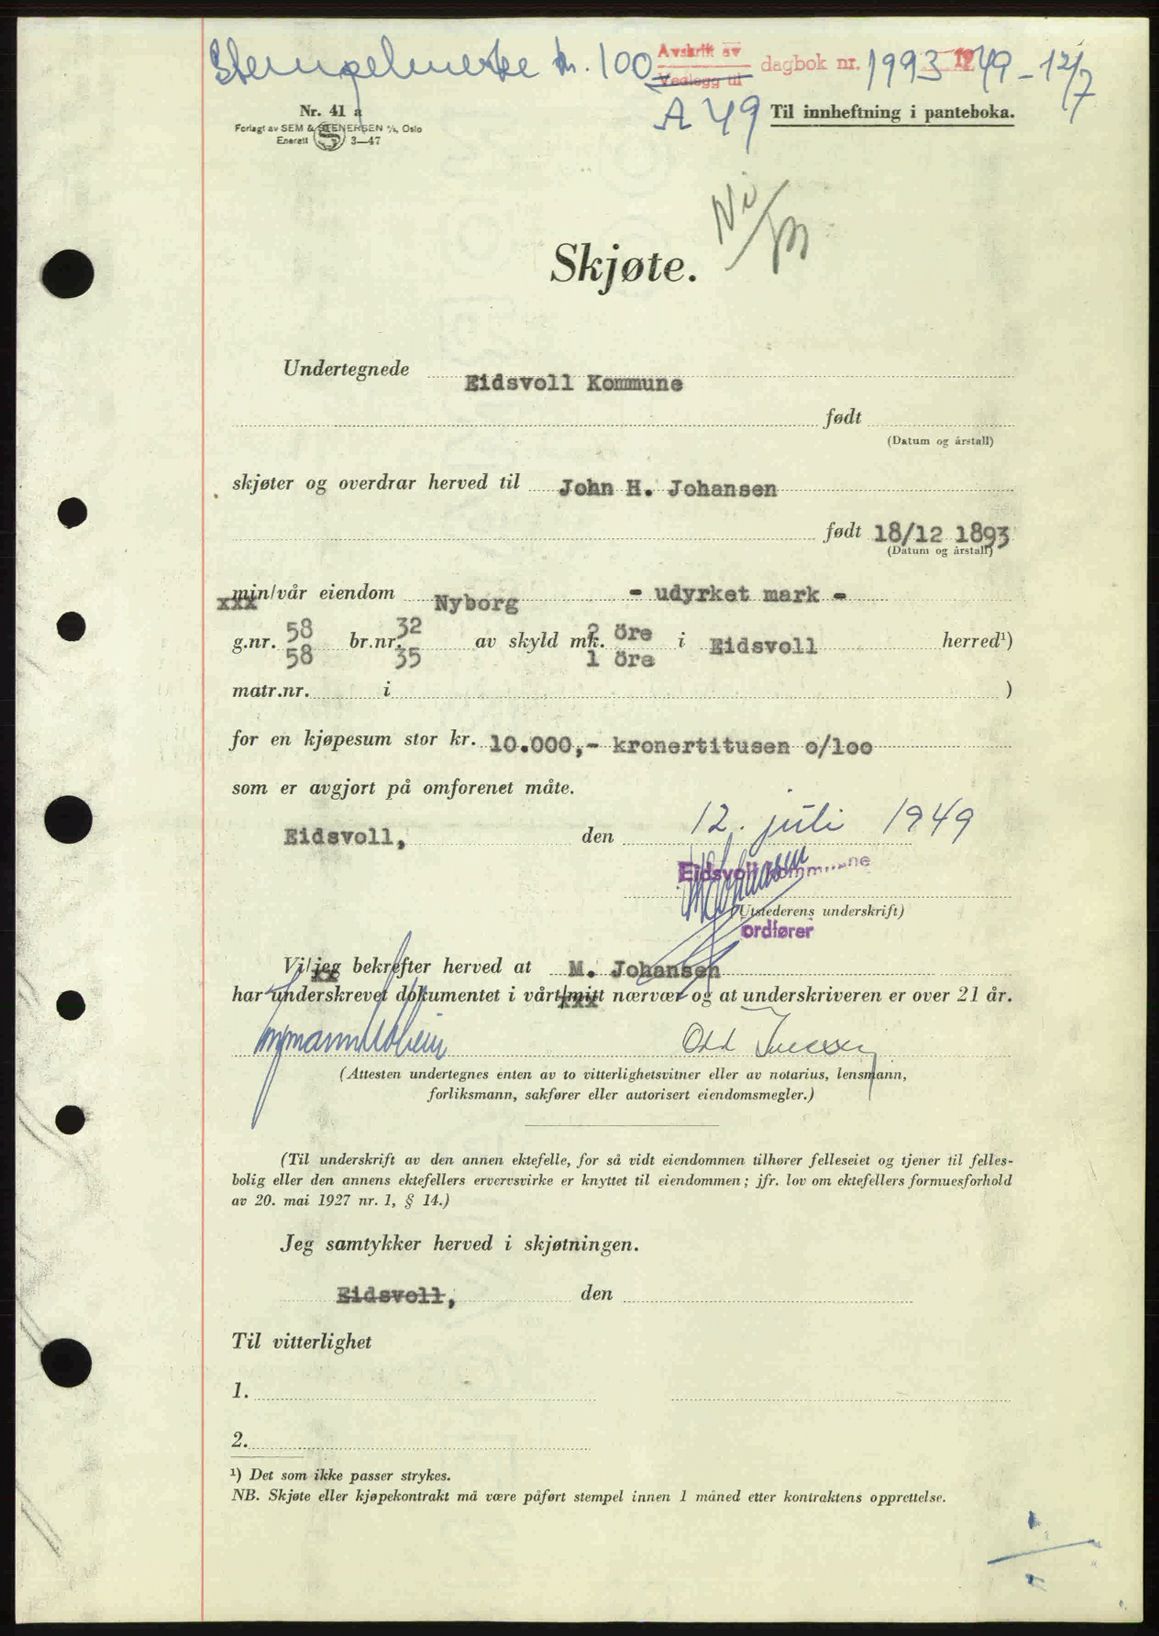 Stempelmerke kr. 100 Avskrift av
Vedlegg til dagbok nr. 1993 1949 - 12/7
A 49 Til innheftning i panteboka.
Nr. 41 a
Forlagt av SEM & STENERSEN A/S, Oslo
Enerett S 3—47
Skjøte.
Undertegnede Eidsvoll Kommune
født
(Datum og årstall)
skjøter og overdrar herved til John H. Johansen
født 18/12 1893
(Datum og årstall)
xxx min/vår eiendom Nyborg - udyrket mark -
g.nr. 58 br.nr. 32 av skyld mk. 2 öre i Eidsvoll herred¹)
58 35 1 öre
matr.nr. i )
for en kjøpesum stor kr. 10.000,- kronertitusen o/loo
som er avgjort på omforenet måte.
Eidsvoll, den 12. juli 1949
Eidsvoll kommune
(Utstederens underskrift)
ordfører
Vi/jeg bekrefter herved at M. Johansen
har underskrevet dokumentet i vårt/mitt nærvær og at underskriveren er over 21 år.
Odd
(Attesten undertegnes enten av to vitterlighetsvitner eller av notarius, lensmann,
forliksmann, sakfører eller autorisert eiendomsmegler.)
(Til underskrift av den annen ektefelle, for så vidt eiendommen tilhører felleseiet og tjener til felles-
bolig eller den annens ektefellers ervervsvirke er knyttet til eiendommen; jfr. lov om ektefellers formuesforhold
av 20. mai 1927 nr. 1, § 14.)
Jeg samtykker herved i skjøtningen.
Eidsvoll, den
Til vitterlighet
1.
2.
¹) Det som ikke passer strykes.
NB. Skjøte eller kjøpekontrakt må være påført stempel innen 1 måned etter kontraktens opprettelse.